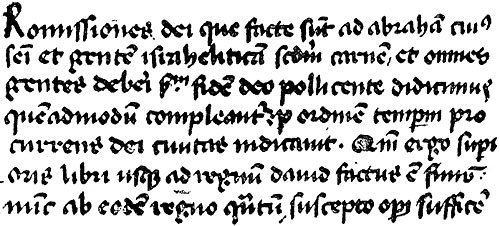 Romissiones dei que facte sūt ad abrahā cuiꝰ
semē et gentē israheliticā scdm̄ carnē, et omnes
gentes deberi s̄m fidē deo pollicente didicimus
quēadmodū compleant᷑ ꝑ ordinē tempꝝ pro
currens dei ciuitas indicauit. Qm̄ ergo supi
oris libri usqꝫ ad regnū dauid factus ē finis
nūc ab eodē regno q̄ntū suscepto opi sufficē